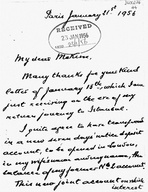 Paris January 21st 1956
RECEIVED
23 JAN 1956
My dear
Many thanks for your kind
letter of January 18th, which I am
just receiving on the eve of my
return journey to
I quite agree to have transferred
in a new seven days' notice deposit
account, to be opened in London,
in my wife's name and my name, the
balance of my former No 2 account.
This new joint account on which
interest